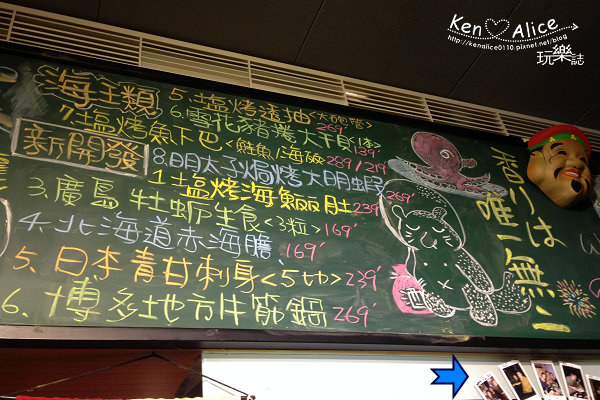 Ken ♡ Alice
http://kenalice0110.pixnet.net/blog
玩樂誌
海王類
5.塩烤透抽<大磯燒> 269'
6.雪花豬捲大干貝<1本> 139'
7.塩烤魚下巴<鮭魚/海鱺> 289'/219'
8.明太子焗烤大明蝦 269'
新開發
1.塩烤海鱺肚 239'
3.廣島牡蠣生食<3粒>169'
4.北海道赤海膽 169'
5.日本青甘刺身<5切>239'
6.博多地方牛筋鍋 269'
香りは
唯一無二
酒